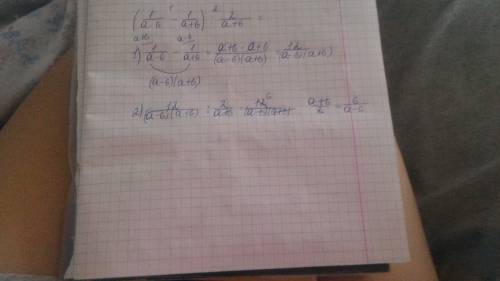 (1/(a-6) - 1/(a+6)) : 2/(a+6) =
1) 1/(a-6) - 1/(a+6) = (a+6-a+6)/((a-6)(a+6)) = 12/((a-6)(a+6))
(a-6)(a+6)
2) 12/((a-6)(a+6)) : 2/(a+6) = 12/((a-6)(a+6)) · (a+6)/2 = 6/(a-6)